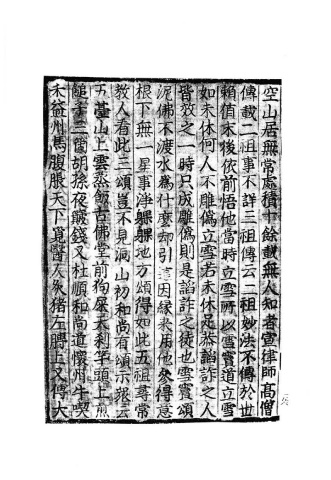 空山居無常處積十餘載無人知者宣律師高僧
傳載二祖事不詳三祖傳云二祖妙法不傳於世
賴值末後依前悟他當時立雪所以雪竇道立雪
如未休何人不雕偽立雪若未休足恭諂詐之人
皆效之一時只成雕偽則是諂詐之徒也雪竇頌
泥佛不渡水為什麼却引這因緣來用他參得意
根下無一星事淨躶躶地方頌得如此五祖尋常
教人看此三頌豈不見洞山初和尚有頌示眾云
五臺山上雲蒸飯古佛堂前狗尿天刹竿頭上煎
鎚子三箇胡孫夜簸錢又杜順和尚道懷州牛喫
禾益州馬腹脹天下覓醫人灸猪左膊上又傅大